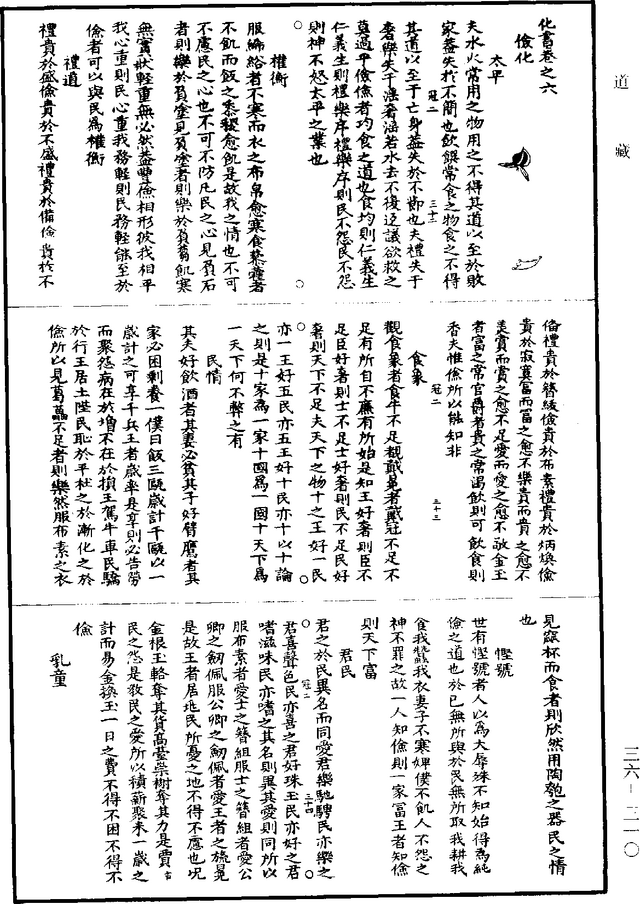 道藏
化書卷之六
儉化
太平
夫水火常用之物用之不得其道以至於敗
家蓋失於不簡也飲饌常食之物食之不得
冠二 三十二
其道以至于亡身蓋失於不節也夫禮失于
奢樂失于淫奢淫若水去不復返議欲救之
莫過乎儉儉者均食之道也食均則仁義生
仁義生則禮樂序禮樂序則民不怨民不怨
則神不怒太平之業也
權衡
服絺綌者不寒而衣之布帛愈寒食藜藿者
不飢而飯之黍稷愈飢是故我之情也不可
不慮民之心也不可不防凡民之心見負石
者則樂於負塗見負塗者則樂於負芻飢寒
無實狀輕重無必然蓋豐儉相形彼我相平
我心重則民心重我務輕則民務輕能至於
儉者可以與民為權衡
禮道
禮貴於盛儉貴於不盛禮貴於備儉貴於不
備禮貴於簪紱儉貴於布素禮貴於炳煥儉
貴於寂寞富而富之愈不樂貴而貴之愈不
美賞而賞之愈不足愛而愛之愈不敬金玉
者富之常官爵者貴之常渴飲則可飲食則
香夫惟儉所以能知非
冠二 三十三
食象
觀食象者食牛不足觀戴冕者戴冠不足不
足有所自不廉有所始是知王好奢則臣不
足臣好奢則士不足士好奢則民不足民好
奢則天下不足夫天下之物十之王好一民
亦一王好五民亦五王好十民亦十以十論
之則是十家為一家十國為一國十天下為
一天下何不弊之有
民情
其夫好飲酒者其妻必貧其子好臂鷹者其
家必困剩養一僕日飯三甌歲計千甌以一
歲計之可享千兵王者歲率是享則必告勞
而聚怨病在於增不在於損王駕牛車民驕
於行王居土陛民恥於平杜之於漸化之於
儉所以見葛藟不足者則樂然服布素之衣
見窳杯而食者則欣然用陶匏之器民之情
也
慳號
世有慳號者人以為大辱殊不知始得為純
儉之道也於己無所與於民無所取我耕我
食我蠶我衣妻子不寒婢僕不飢人不怨之
神不罪之故一人知儉則一家富王者知儉
則天下富
君民
君之於民異名而同愛君樂馳騁民亦樂之
冠二 三十四
君喜聲色民亦喜之君好珠玉民亦好之君
嗜滋味民亦嗜之其名則異其愛則同所以
服布素者愛士之簪組服士之簪組者愛公
卿之劒佩服公卿之劒佩者愛王者之旒冕
是故王者居兆民所憂之地不得不慮也況
金根玉輅奪其貨高臺崇榭奪其力是賈
民之怨是教民之愛所以積薪聚米一歲之
計而易金換玉一日之費不得不困不得不
儉
乳童
三六—三一〇